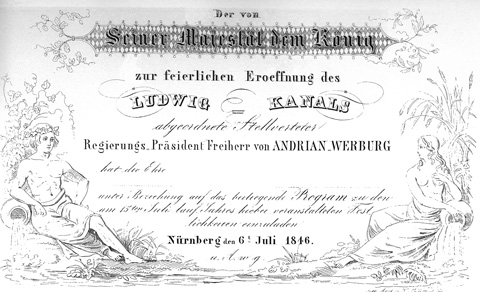 Der von
Seiner Majestät dem König
zur feierlichen Eroeffnung des
LUDWIG = KANALS
abgeordnete Stellvertreter
Regierungs-Präsident Freiherr von ANDRIAN-WERBURG
hat die Ehre
unter Beziehung auf das beiliegende Program zu den
am 15ten Juli lauf. Jahres hieber veranstalteten Fest
lichkeiten einzuladen
Nürnberg den 6t Juli 1846.
u. A. w. g